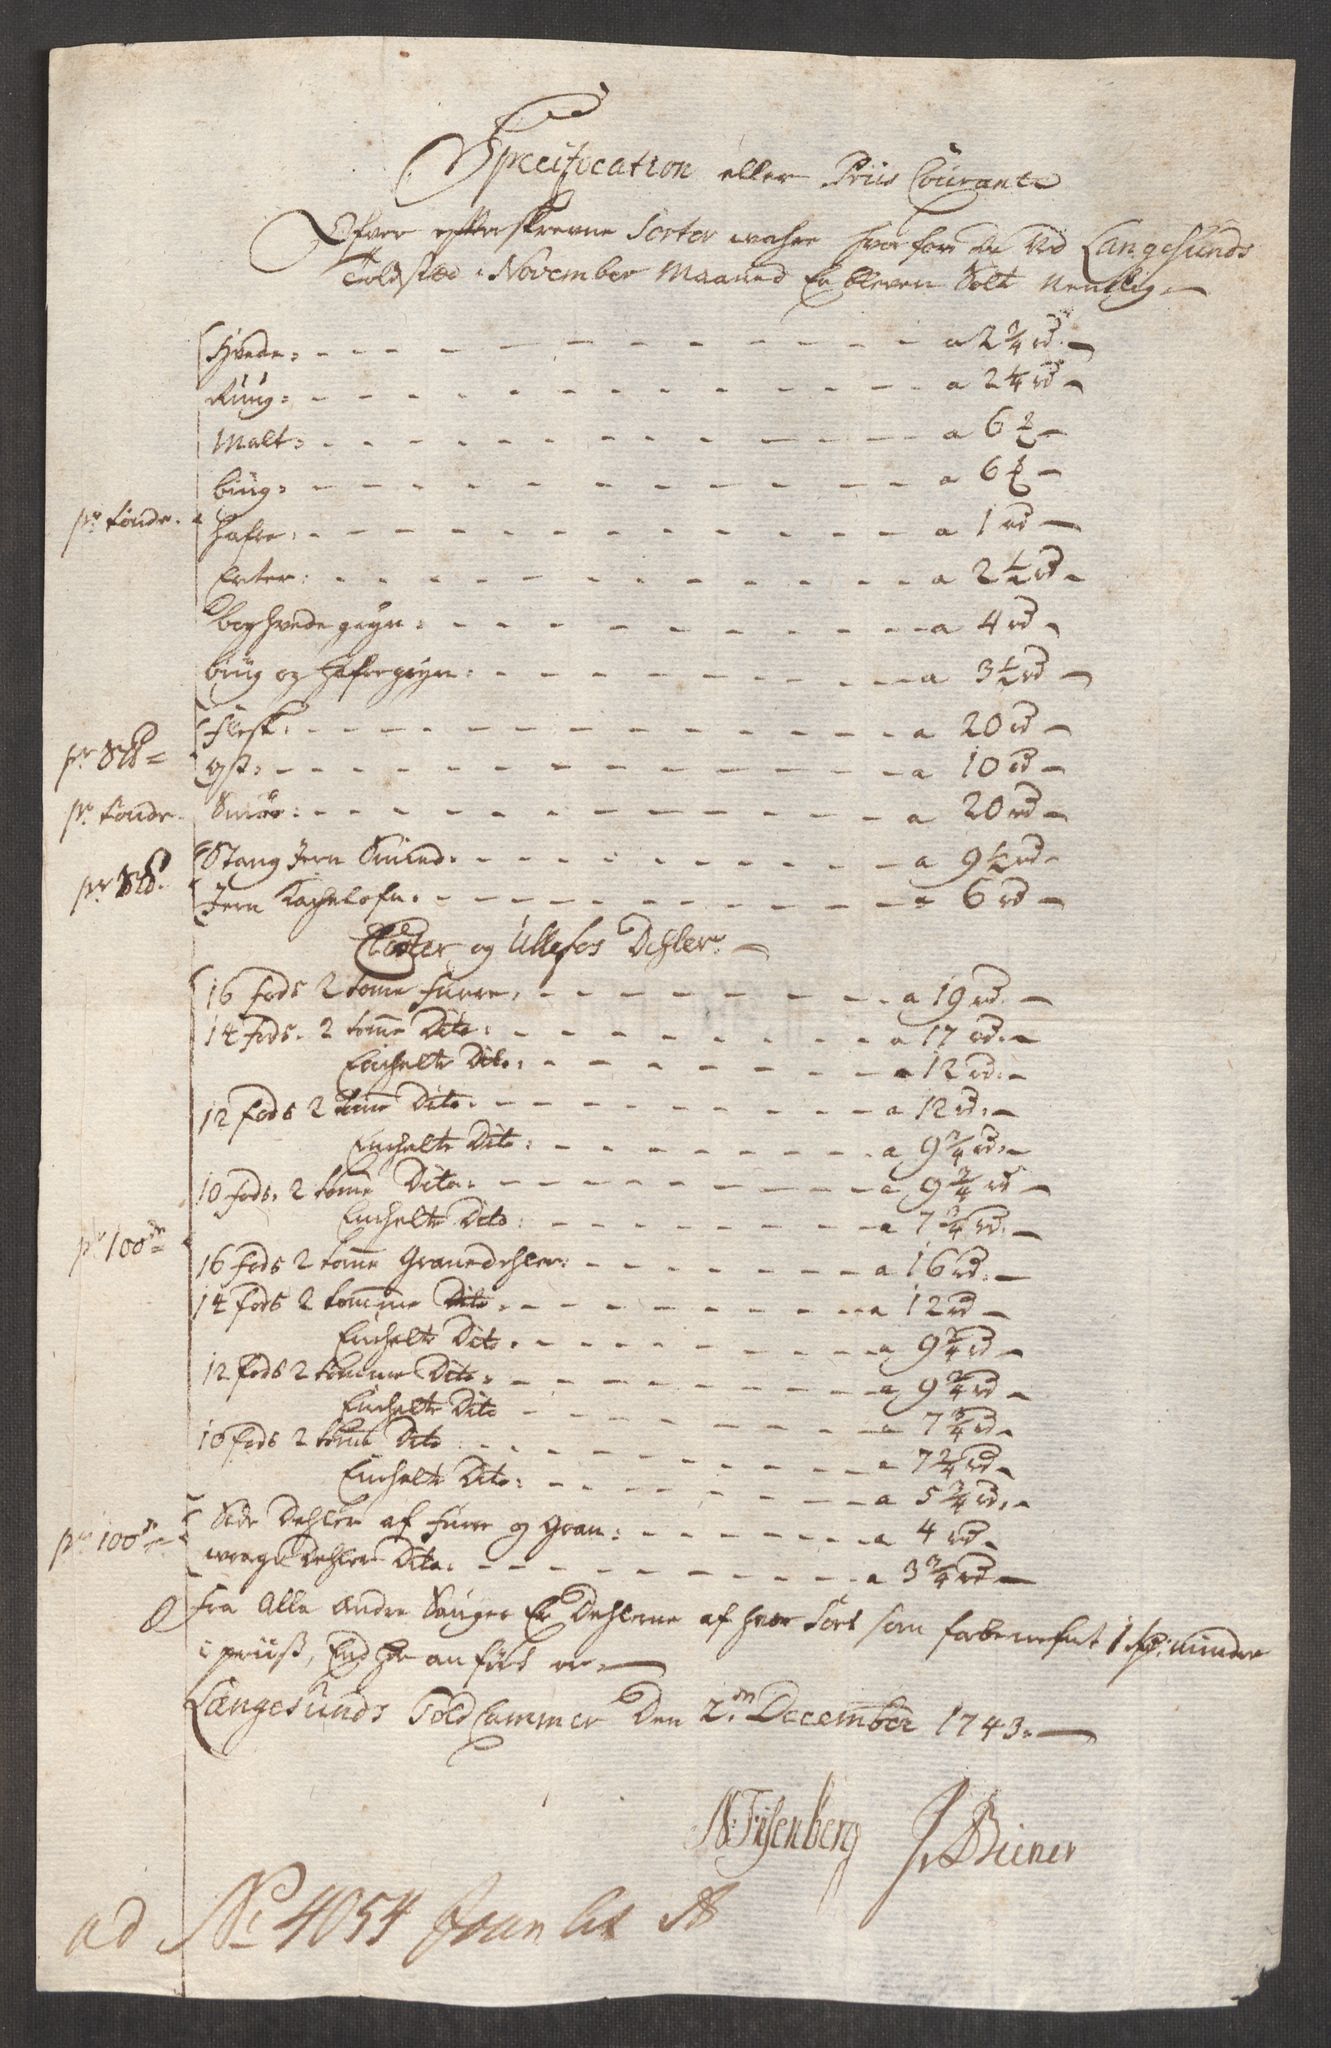 Specification eller Priis Courante
Ofver efterskrevne Sorter wahre hvor for de Ved Langesunds
Toldsted i November Maaned Er bleven Solt Nemlig
Hvede: a 2 3/4 rd
Rüug: a 2 1/4 rd
Malt: a 6
biug: a 6
pr tönde. Hafre: a 1 rd
Erter: a 2 1/2 rd
boghvede gryn: a 4 rd
biug og Hafregryn: a 3 1/2 rd
Flesk: a 20 rd
pr
Ost: a 10 rd
pr. tönde. Smör: a 20 rd
Stang Jern Smied: a 9 1/2 rd
pr
Jern Kachelofn: a 6 rd
Closter og Ullefos Dehler
16 fods 2 tome furre: a 19 rd
14 fods. 2 tome Dito: a 17 rd
Enchelte Dito: a 12 rd
12 fods 2 tome Dito: a 12 rd
Enchelte Dito: a 9 3/4 rd
10 fods. 2 tome Dito: a 9 3/4 rd
Enchelte Dito: a 7 3/4 rd
pr 100de
16 fods 2 tome Granedehler: a 16 rd
14 fods 2 tomme Dito: a 12 rd
Enchelte Dito: a 9 3/4 rd
12 fods 2 tomme Dito: a 9 3/4 rd
Enchelte Dito a 7 3/4 rd
10 fods 2 tome Dito a 7 3/4 rd
Enchelte Dito: a 5 3/4 rd
pr 100de Side Dehler af furre og gran: a 4 rd
wrage Dehler Dito: a 3 3/4 rd
Fra Alle Andre Sauger Er Dehlerne af hver Sort som forbenefnt 1 rd: mindre
i priiß, End her anfört er
Langesunds Told Cammer Den 2den December 1743.
N: Fisenberg J. Biener
ad No 4054 Lit A